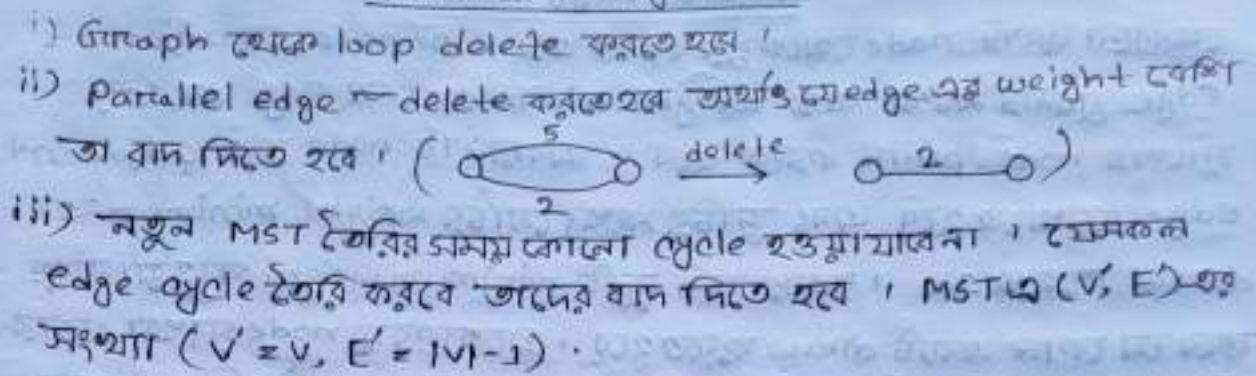 i) Graph থেকে loop delete করতে হবে।
ii) Parallel edge delete করতে হবে অর্থাৎ যে edge এর weight বেশি
তা বাদ দিতে হবে। ( 5 2 delete 2 )
iii) নতুন MST তৈরির সময় কোনো cycle হওয়া যাবে না। যেসকল
edge cycle তৈরি করবে তাদের বাদ দিতে হবে। MST এ (V', E') এর
সংখ্যা (V' = V, E' = |V|-1).